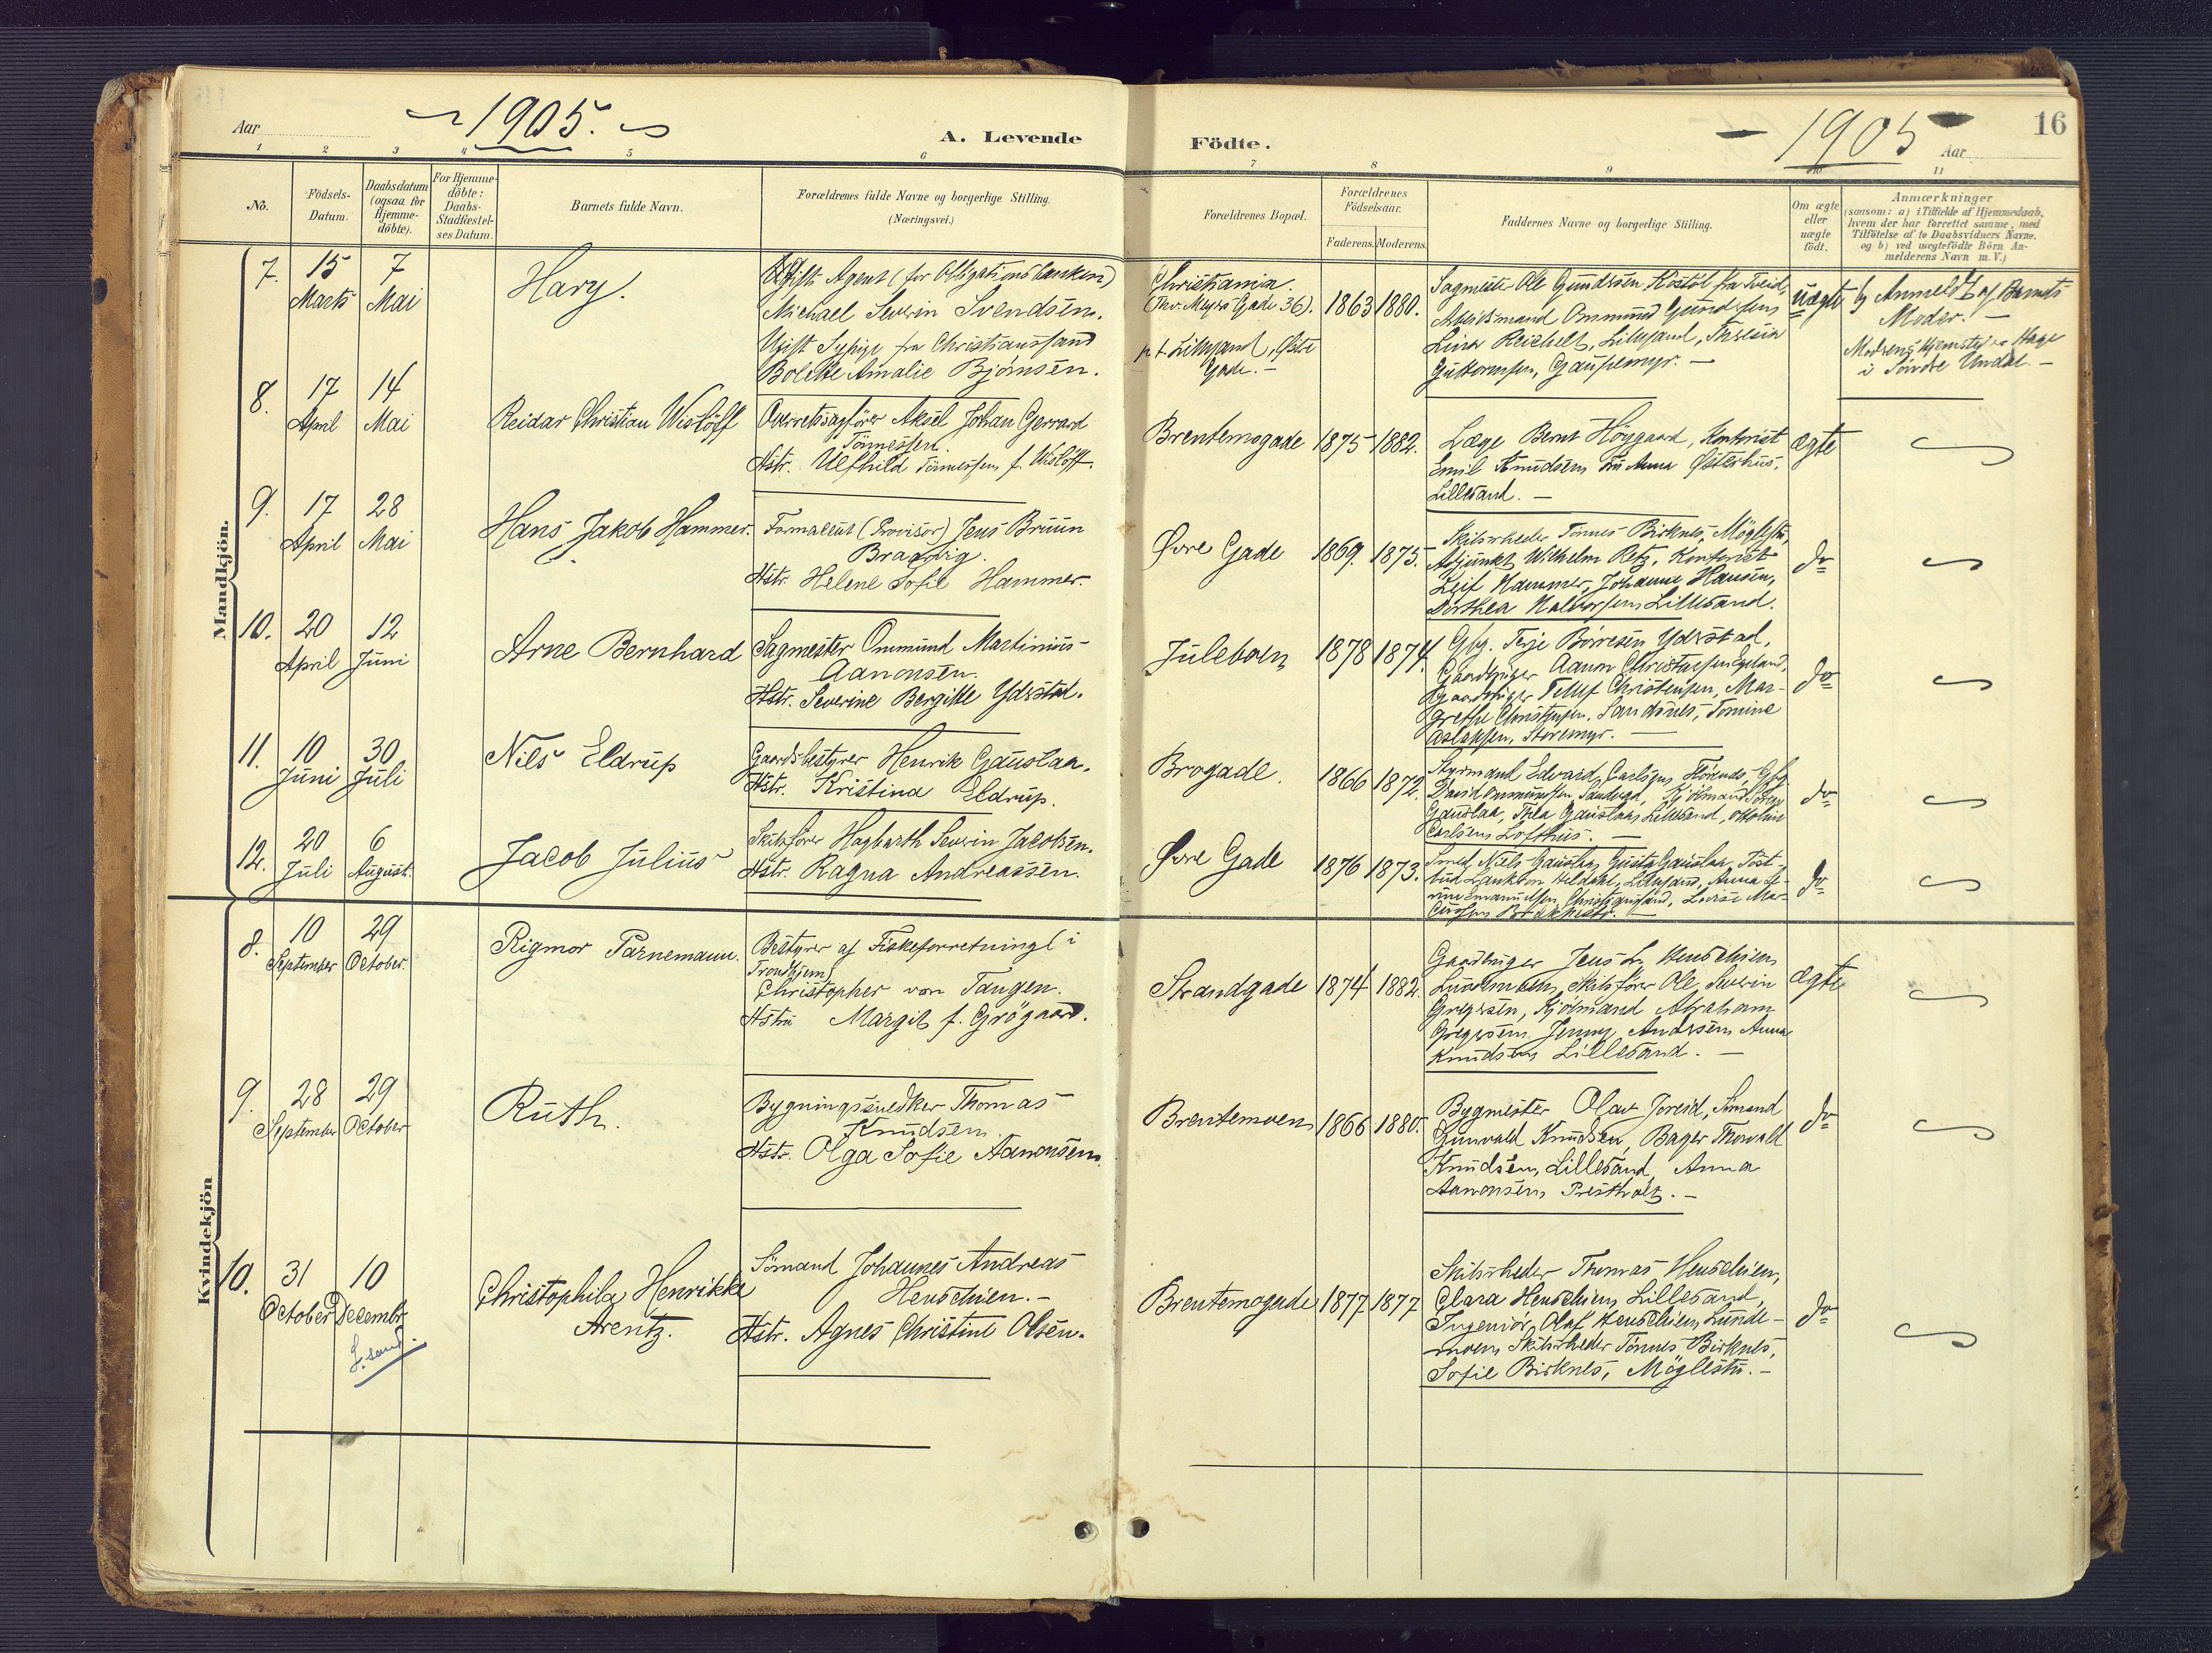 Aar
1905.
A. Levende
Födte.
1905
Aar
16
1
2
3
4
5
6
7
8
9
10
11
No.
Födsels-
Datum.
Daabsdatum
(ogsaa for
Hjemme-
döbte).
For Hjemme-
döbte:
Daabs-
Stadfæstel-
ses Datum.
Barnets fulde Navn.
Forældrenes fulde Navne og borgerlige Stilling.
(Næringsvei.)
Forældrenes Bopæl.
Forældrenes
Födselsaar.
Faderens.
Moderens.
Faddernes Navne og borgerlige Stilling.
Om ægte
eller
uægte
födt.
Anmærkninger
(saasom: a) i Tilfælde af Hjemmedaab,
hvem der har forrettet samme, med
Tilföielse af to Daabsvidners Navne,
og b) ved uægtefödte Börn An-
melderens Navn m. V.)
Mandkjön.
7.
15
Marts
7
Mai
Hary.
Ugift Agent (for Obligationsbanken)
Michael Severin Svendsen.
Ugift Sypige fra Christianssand
Bolette Amalie Björnsen.
Christiania.
(Thv. Meyers Gade 36).
p. t. Lillesand, Østre
Gade. -
1863
1880.
Sagmester Ole Gundersen Kostöl fra Tveid,
Arbeidsmand Ommund Gundersen
Lina Reichelt, Lillesand, Theresia
Guttormsen, Gaupemyr. -
uægte
b) Anmeldt af Barnets
Moder. -
Modrens Hjemsted er Hage
i Söndre Undal. -
8.
17
April
14
Mai
Reidar Christian Wislöff
Overretssagförer Aksel Johan Gerrard
Tönnessen.
Hstr. Ulfhild Tönnessen f. Wislöff.
Brentemogade
1875
1882.
Læge Bernt Höygaard, Kontorist
Emil Knudsen Fru Anna Østerhus,
Lillesand. -
ægte
9.
17
April
28
Mai
Hans Jakob Hammer.
Farmaceut (Provisor) Jens Bruun
Bragdvig.
Hstr. Helene Sofie Hammer.
Øvre Gade
1869.
1875.
Skibsrheder Tönnes Birknes, Möglestu,
Adjunkt Wilhelm Retz, Kontorist
Leif Hammer, Johanne Hansen,
Dorthea Halvorsen Lillesand.
do
10.
20
April
12
Juni
Arne Bernhard
Sagmester Ommund Martinius
Aanonsen.
Hstr. Severine Bergitte Ydrstad.
Juleboen
1878
1874
Gbg. Terje Börresen Ydrstad,
Gaardbruger Aanon Christensen Egeland,
Gaardbruger Tellef Christensen, Mar-
grethe Christensen, Sandsnes, Tomine
Aslaksen, Storemyr. -
do
11.
10
Juni
30
Juli
Nils Eldrup
Gaardsbestyrer Henrik Gauslaa.
Hstr. Kristina Eldrup.
Brogade.
1866
1872.
Styrmand Edvard Carlsen
Gauslaa, Thea Gauslaa, Lillesand,
Carlsen Lofthus. -
do
12.
20
Juli
6
August.
Jacob Julius
Skibsförer Hagbarth Severin Jacobsen.
Hstr. Ragna Andreassen.
Øvre Gade
1876
1873.
Smed Niels Gauslaa, Gusta Gauslaa, Post-
Lillesand, Anna Se-
rine Emanuelsen, Christianssand, Lovise Mar-
do
Kvindekjön
8.
10
September
29
October.
Rigmor Parnemann.
Bestyrer af Fiskeforretningl i
Trondhjem
Christopher von Tangen.
Hstru Margit f. Grögaard.
Strandgade
1874
1882.
Gaardbruger Jens L. Henschien
Lundemoen, Skibsförer Ole Severin
Gregersen, Kjölmand Abraham
Gregersen Jenny Andersen Anna
Knudsen Lillesand. -
ægte
9.
28
September
29
October
Ruth.
Bygningssnedker Thomas
Knudsen
Hstr. Olga Sofie Aanonsen.
Brentemoen
1866
1880.
Bygmester Olav Joreid, Sömand
Gunvald Knudsen, Bager Thorvald
Knudsen, Lillesand, Anna
Aanonsen Prestholt. -
do
10.
31
October
10
Decembr.
L.sand
Christophila Henrikke
Arentz.
Sömand Johannes Andreas
Henschien. -
Hstr. Agnes Christine Olsen.
Brentemogade
1877
1877
Skibsrheder Thomas Henschien,
Clara Henschien, Lillesand,
Ingeniör Olaf Henschien, Lunde-
moen, Skibsrheder Tönnes Birknes,
Sofie Birknes, Möglestu. -
do